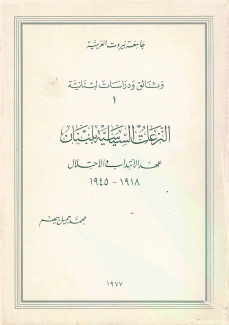 جامعة بيروت العربية
وثائق ودراسات لبنانية
١
النزعات السياسية بلبنان
عهد الانتداب والاحتلال
١٩١٨ - ١٩٤٥
محمد جميل بيهم
١٩٧٧